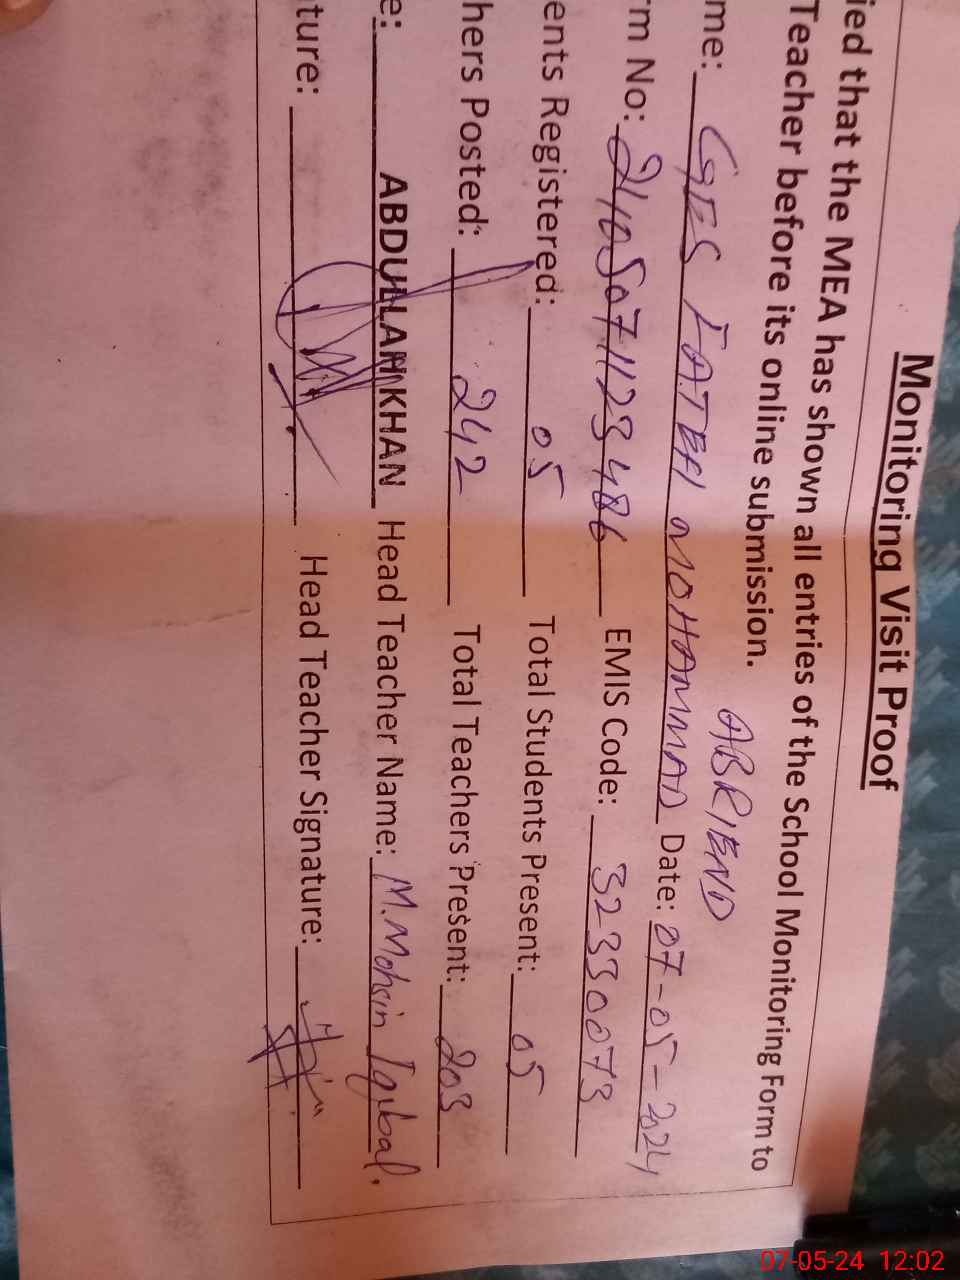 Monitoring Visit Proof
ied that the MEA has shown all entries of the School Monitoring Form to
Teacher before its online submission.
ABRIEND
me: GES FATEH MOHAMMAD Date: 07-05-2024
rm No: 21105071123486 EMIS Code: 32330073
ents Registered: 05 Total Students Present: 05
hers Posted: 242 Total Teachers Present: 203
e: ABDULLAH KHAN Head Teacher Name: M. Mohsin Iqbal.
ature: Head Teacher Signature:
07-05-24 12:02